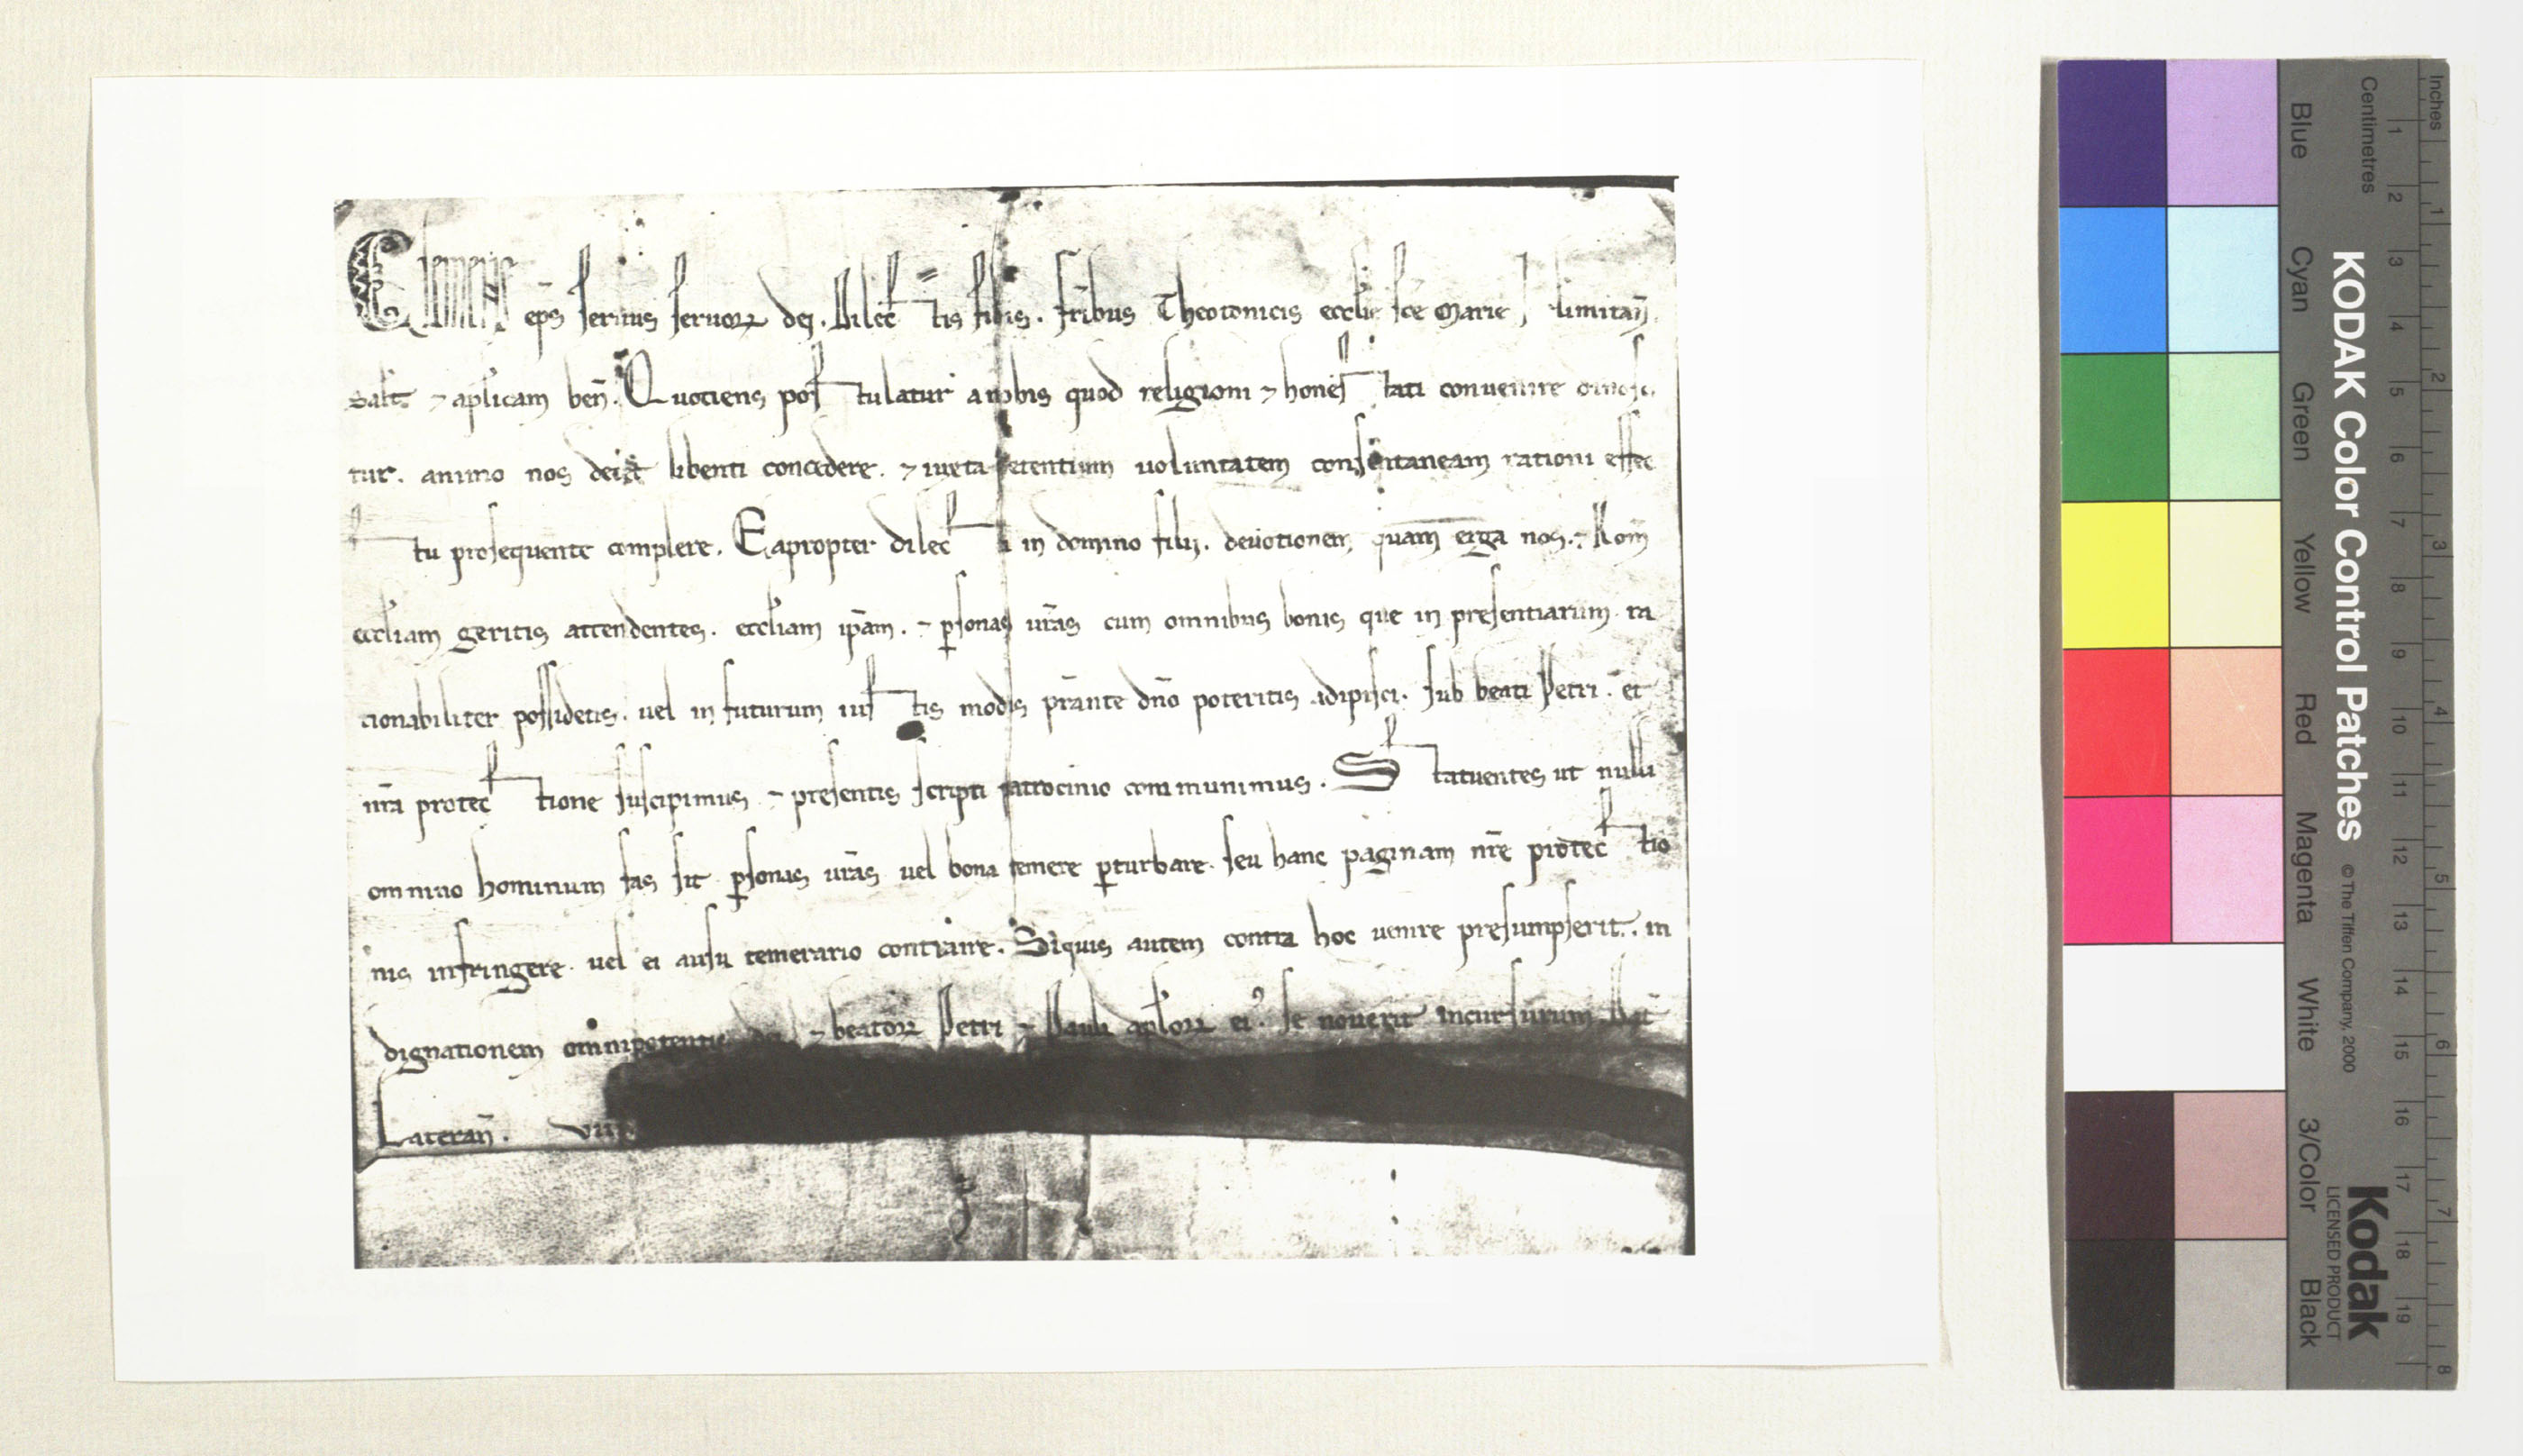 Clemens ep̄s seruus seruoꝝ dei. Dilectis filiis. fr̄ibus Theotonicis eccl̄ie sc̄e Marie limitan̄.
Salt̄. ⁊ apl̄icam ben̄. Quotiens postulatur a nobis quod religioni ⁊ honestati conuenire
tur. animo nos decet libenti concedere. ⁊ iuxta petentium uoluntatem consentaneam rationi effec
tu prosequente complere. Eapropter dilecti in domino filij. deuotionem quam erga nos. ⁊ Rom̄
eccl̄iam geritis attendentes. eccl̄iam ip̄am. ⁊ ꝑsonas ur̄as cum omnibus bonis que in presentiarum ra
tionabiliter possidetis. uel in futurum iustis modis pr̄ante dn̄o poteritis adipisci. sub beati Petri. et
nr̄a protectione suscipimus ⁊ presentis scripti patrocinio communimus. Statuentes ut nulli
omnino hominum fas sit ꝑsonas ur̄as uel bona temere ꝑturbare. seu hanc paginam nr̄e protectio
nis infringere. uel ei ausu temerario contraire. Siquis autem contra hoc uenire presumpserit. in
dignationem omnipotentis dei ⁊ beatoꝝ Petri ⁊ Pauli apl̄oꝝ eiꝰ. se nouerit incursurum. Dat̄
Lateran̄.
Inches
Centimetres
1 2 3 4 5 6 7 8 9 10 11 12 13 14 15 16 17 18 19
1 2 3 4 5 6 7 8
KODAK Color Control Patches
© The Tiffen Company, 2000
Kodak
LICENSED PRODUCT
Blue
Cyan
Green
Yellow
Red
Magenta
White
3/Color
Black